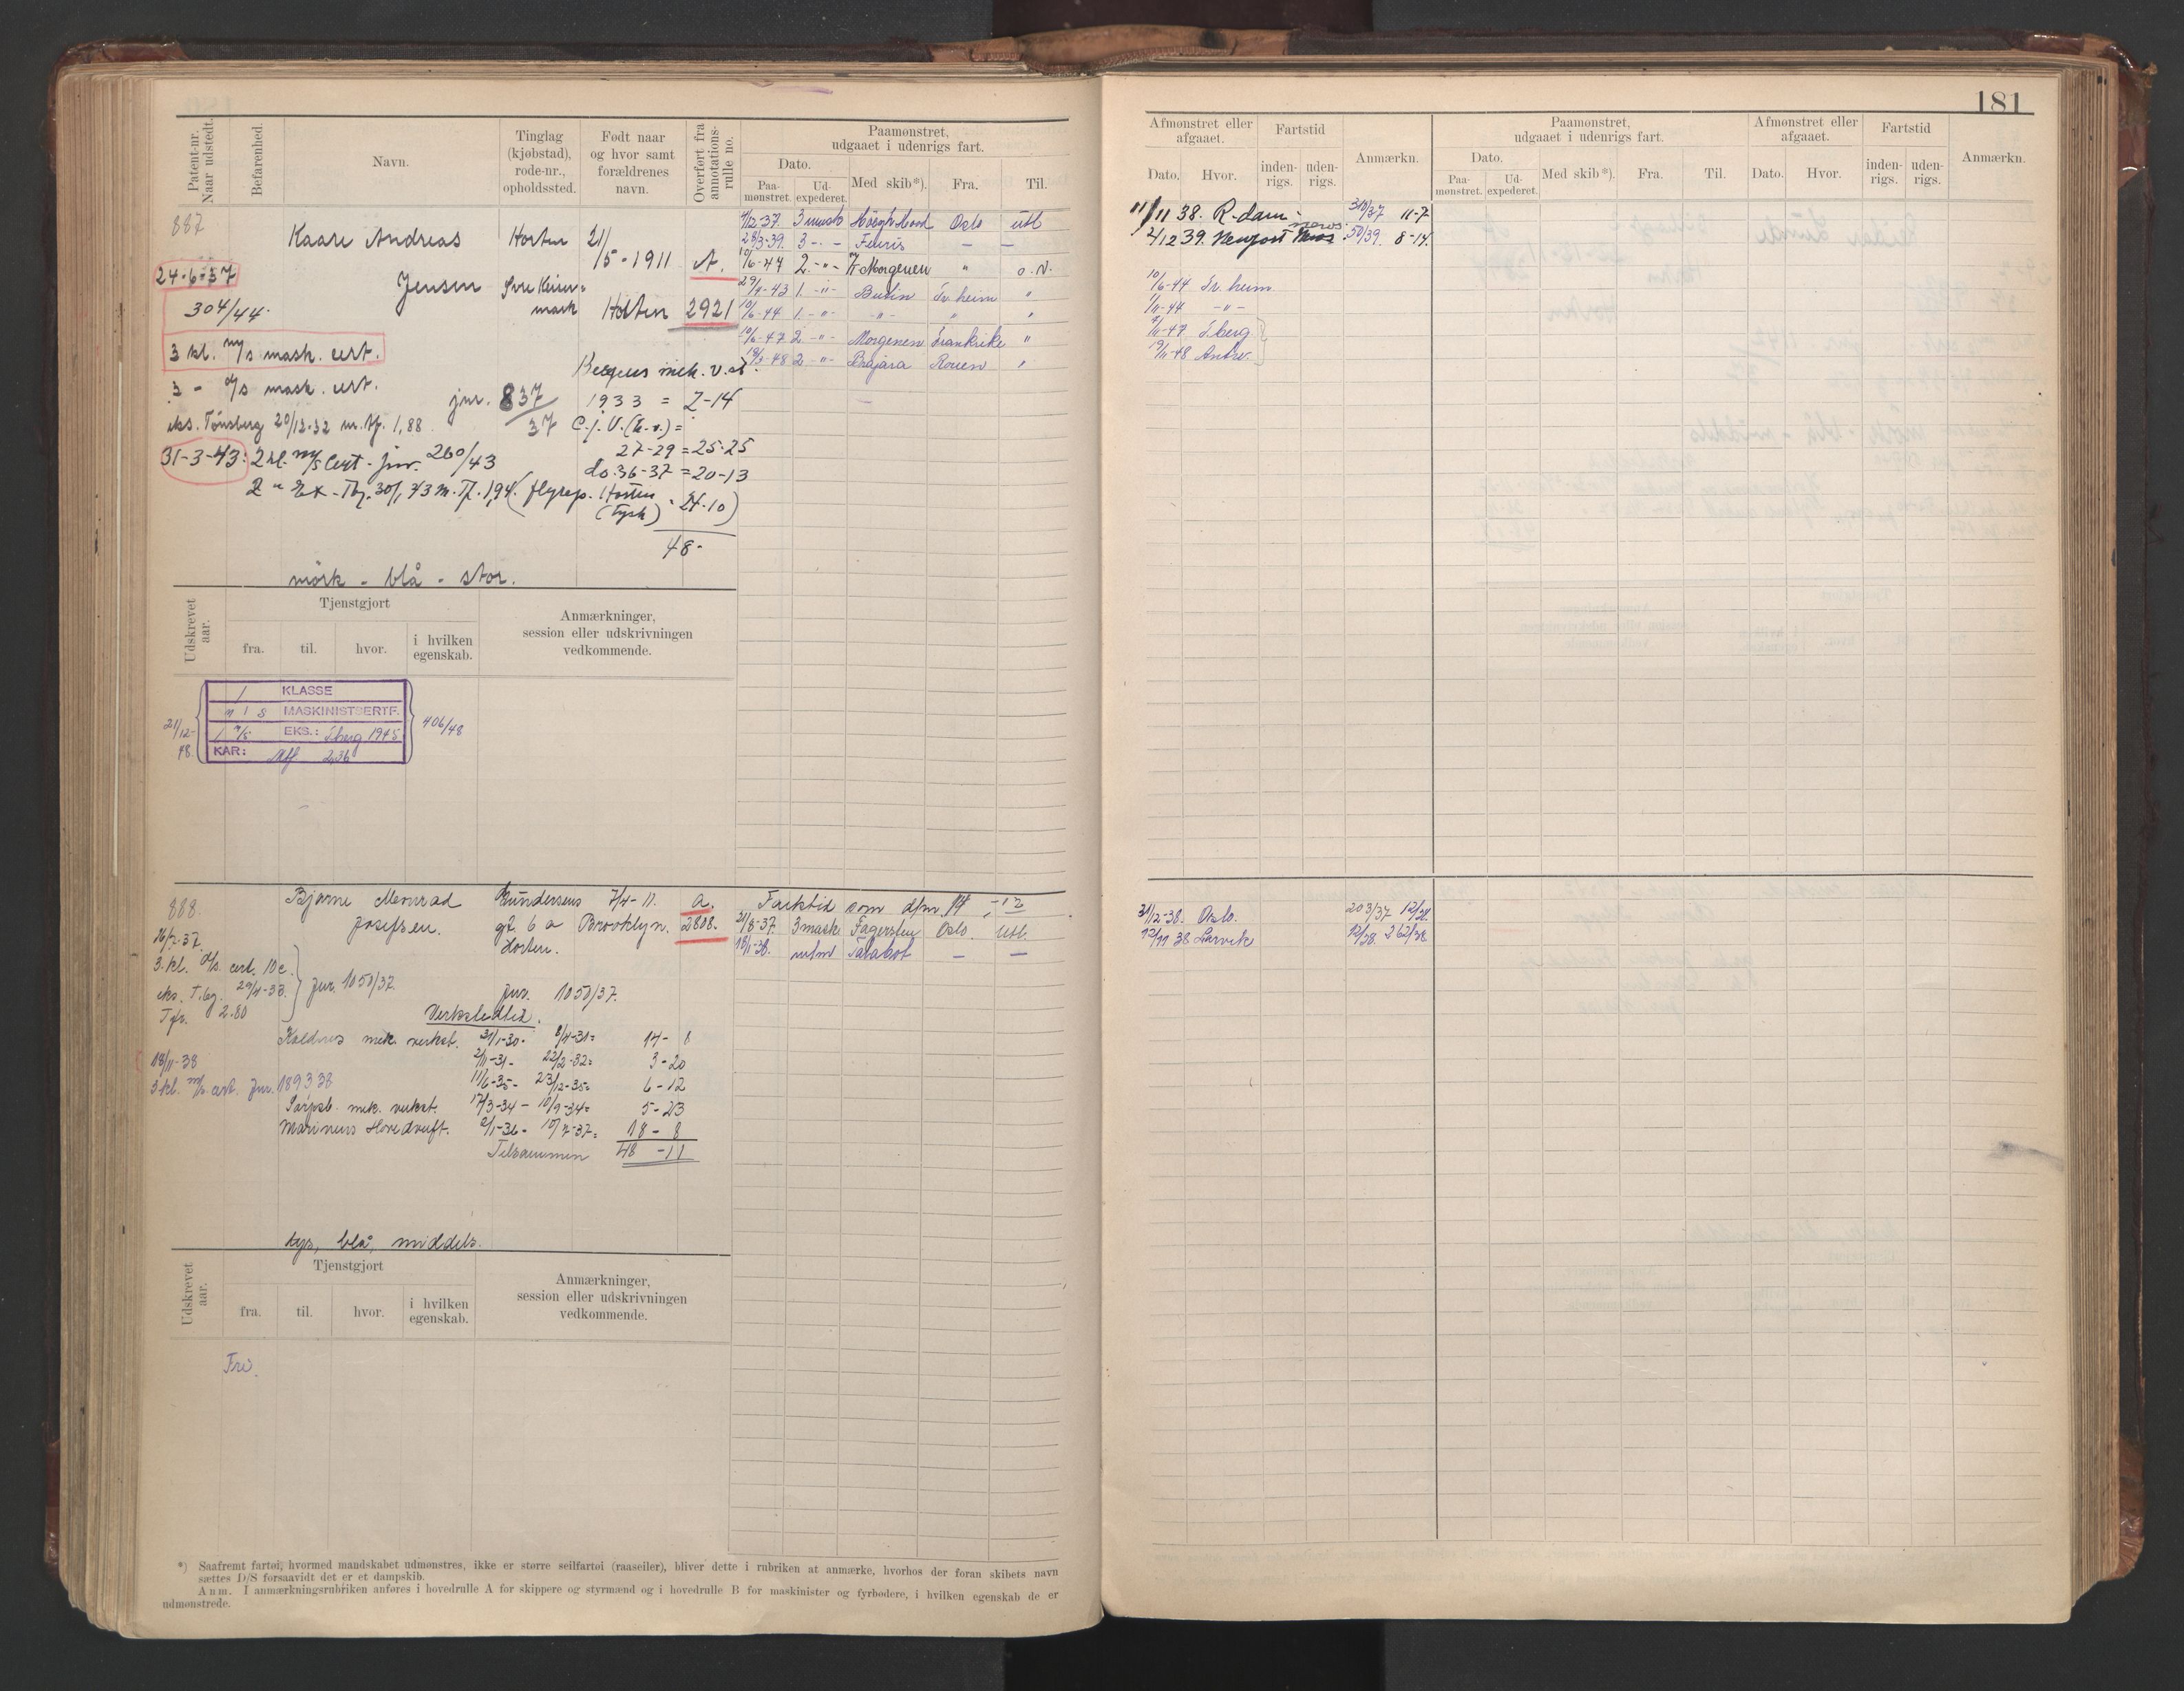 181
Patent-nr. Naar udstedt.
Befarenhed.
Navn.
Tinglag (kjøbstad), rode-nr., opholdssted.
Født naar og hvor samt forældrenes navn.
Overført fra annotations-rulle no.
Paamønstret, udgaaet i udenrigs fart.
Dato.
Paa-mønstret.
Ud-expederet.
Med skib*).
Fra.
Til.
Afmønstret eller afgaaet.
Dato.
Hvor.
Fartstid
inden-rigs.
uden-rigs.
Anmærkn.
Paamønstret, udgaaet i udenrigs fart.
Dato.
Paa-mønstret.
Ud-expederet.
Med skib*).
Fra.
Til.
Afmønstret eller afgaaet.
Dato.
Hvor.
Fartstid
inden-rigs.
uden-rigs.
Anmærkn.
887
Kaare Andreas
Jensen
Horten
21/5-1911
Horten
A.
2921
24-6-37
304/44
3 kl. m/s mask. cert.
3 - d/s mask. cert.
eks. Tønsberg 20/12-32
1,88
jnr. 837/37
1933 = 2-14
27-29 = 25-25
do. 36-37 = 20-13
31-3-43: 2 kl. m/s Cert. jnr. 260/43
1,94
Horten
(Tysk) 24-10)
48-
mörk - blå - stor.
4/12-37. Oslo utl
28/3-39. 3 - - Fernis — —
10/6-47 2 - " - Morgenen " o.N.
1. - " - Tr. heim "
10/6-44 1. - " - " "
10/6-47 2 - " - Morgenen Frankrike "
48 2 - " - Brajara Rouen "
11/11 38. R-dam 310/37 11-7
2/12 39. Newport News 50/39. 8-14.
10/6-44 Tr. heim
1/11-44 - " -
Antw.
Udskrevet aar.
Tjenstgjort
fra.
til.
hvor.
i hvilken egenskab.
Anmærkninger, session eller udskrivningen vedkommende.
21/12-48.
1 KLASSE
MASKINISTSERTF.
EKS.: Tberg 1945
KAR: 2,36
406/48
888.
Bjarne Monrad
Josefsen.
Gundersens
gt. 6 a
Horten.
7/4-11.
Brooklyn.
A.
2808.
26/7-37.
3. kl. d/s. cert.
eks. T.bg.
2.80
jnr. 1050/37.
jnr. 1050/37.
Verkstedtid.
Kaldnes mek. verkst. 31/1-30- 8/4-31= 14- 8
2/11-31- 22/2-32= 3-20
11/6-35- 23/12-35= 6-12
Sarpsb. mek. verkst. 17/3-34- 10/9-34= 5-23
Marinens Hovedverft. 2/1-36- 10/7-37= 18- 8
Tilsammen 48 -11
18/11-38
3. kl. m/s cert. Jnr. 1893 38
lys, blå, middels.
21/8-37. 3 mask Oslo. Utl.
18/1-38. Talabot — —
31/12-38. Oslo. 203/37
12/11 38 Larvik 262/38.
Udskrevet aar.
Tjenstgjort
fra.
til.
hvor.
i hvilken egenskab.
Anmærkninger, session eller udskrivningen vedkommende.
Fri.
*) Saafremt fartøi, hvormed mandskabet udmønstres, ikke er større seilfartøi (raaseiler), bliver dette i rubriken at anmærke, hvorhos der foran skibets navn
sættes D/S forsaavidt det er et dampskib.
Anm. I anmærkningsrubriken anføres i hovedrulle A for skippere og styrmænd og i hovedrulle B for maskinister og fyrbødere, i hvilken egenskab de er
udmønstrede.